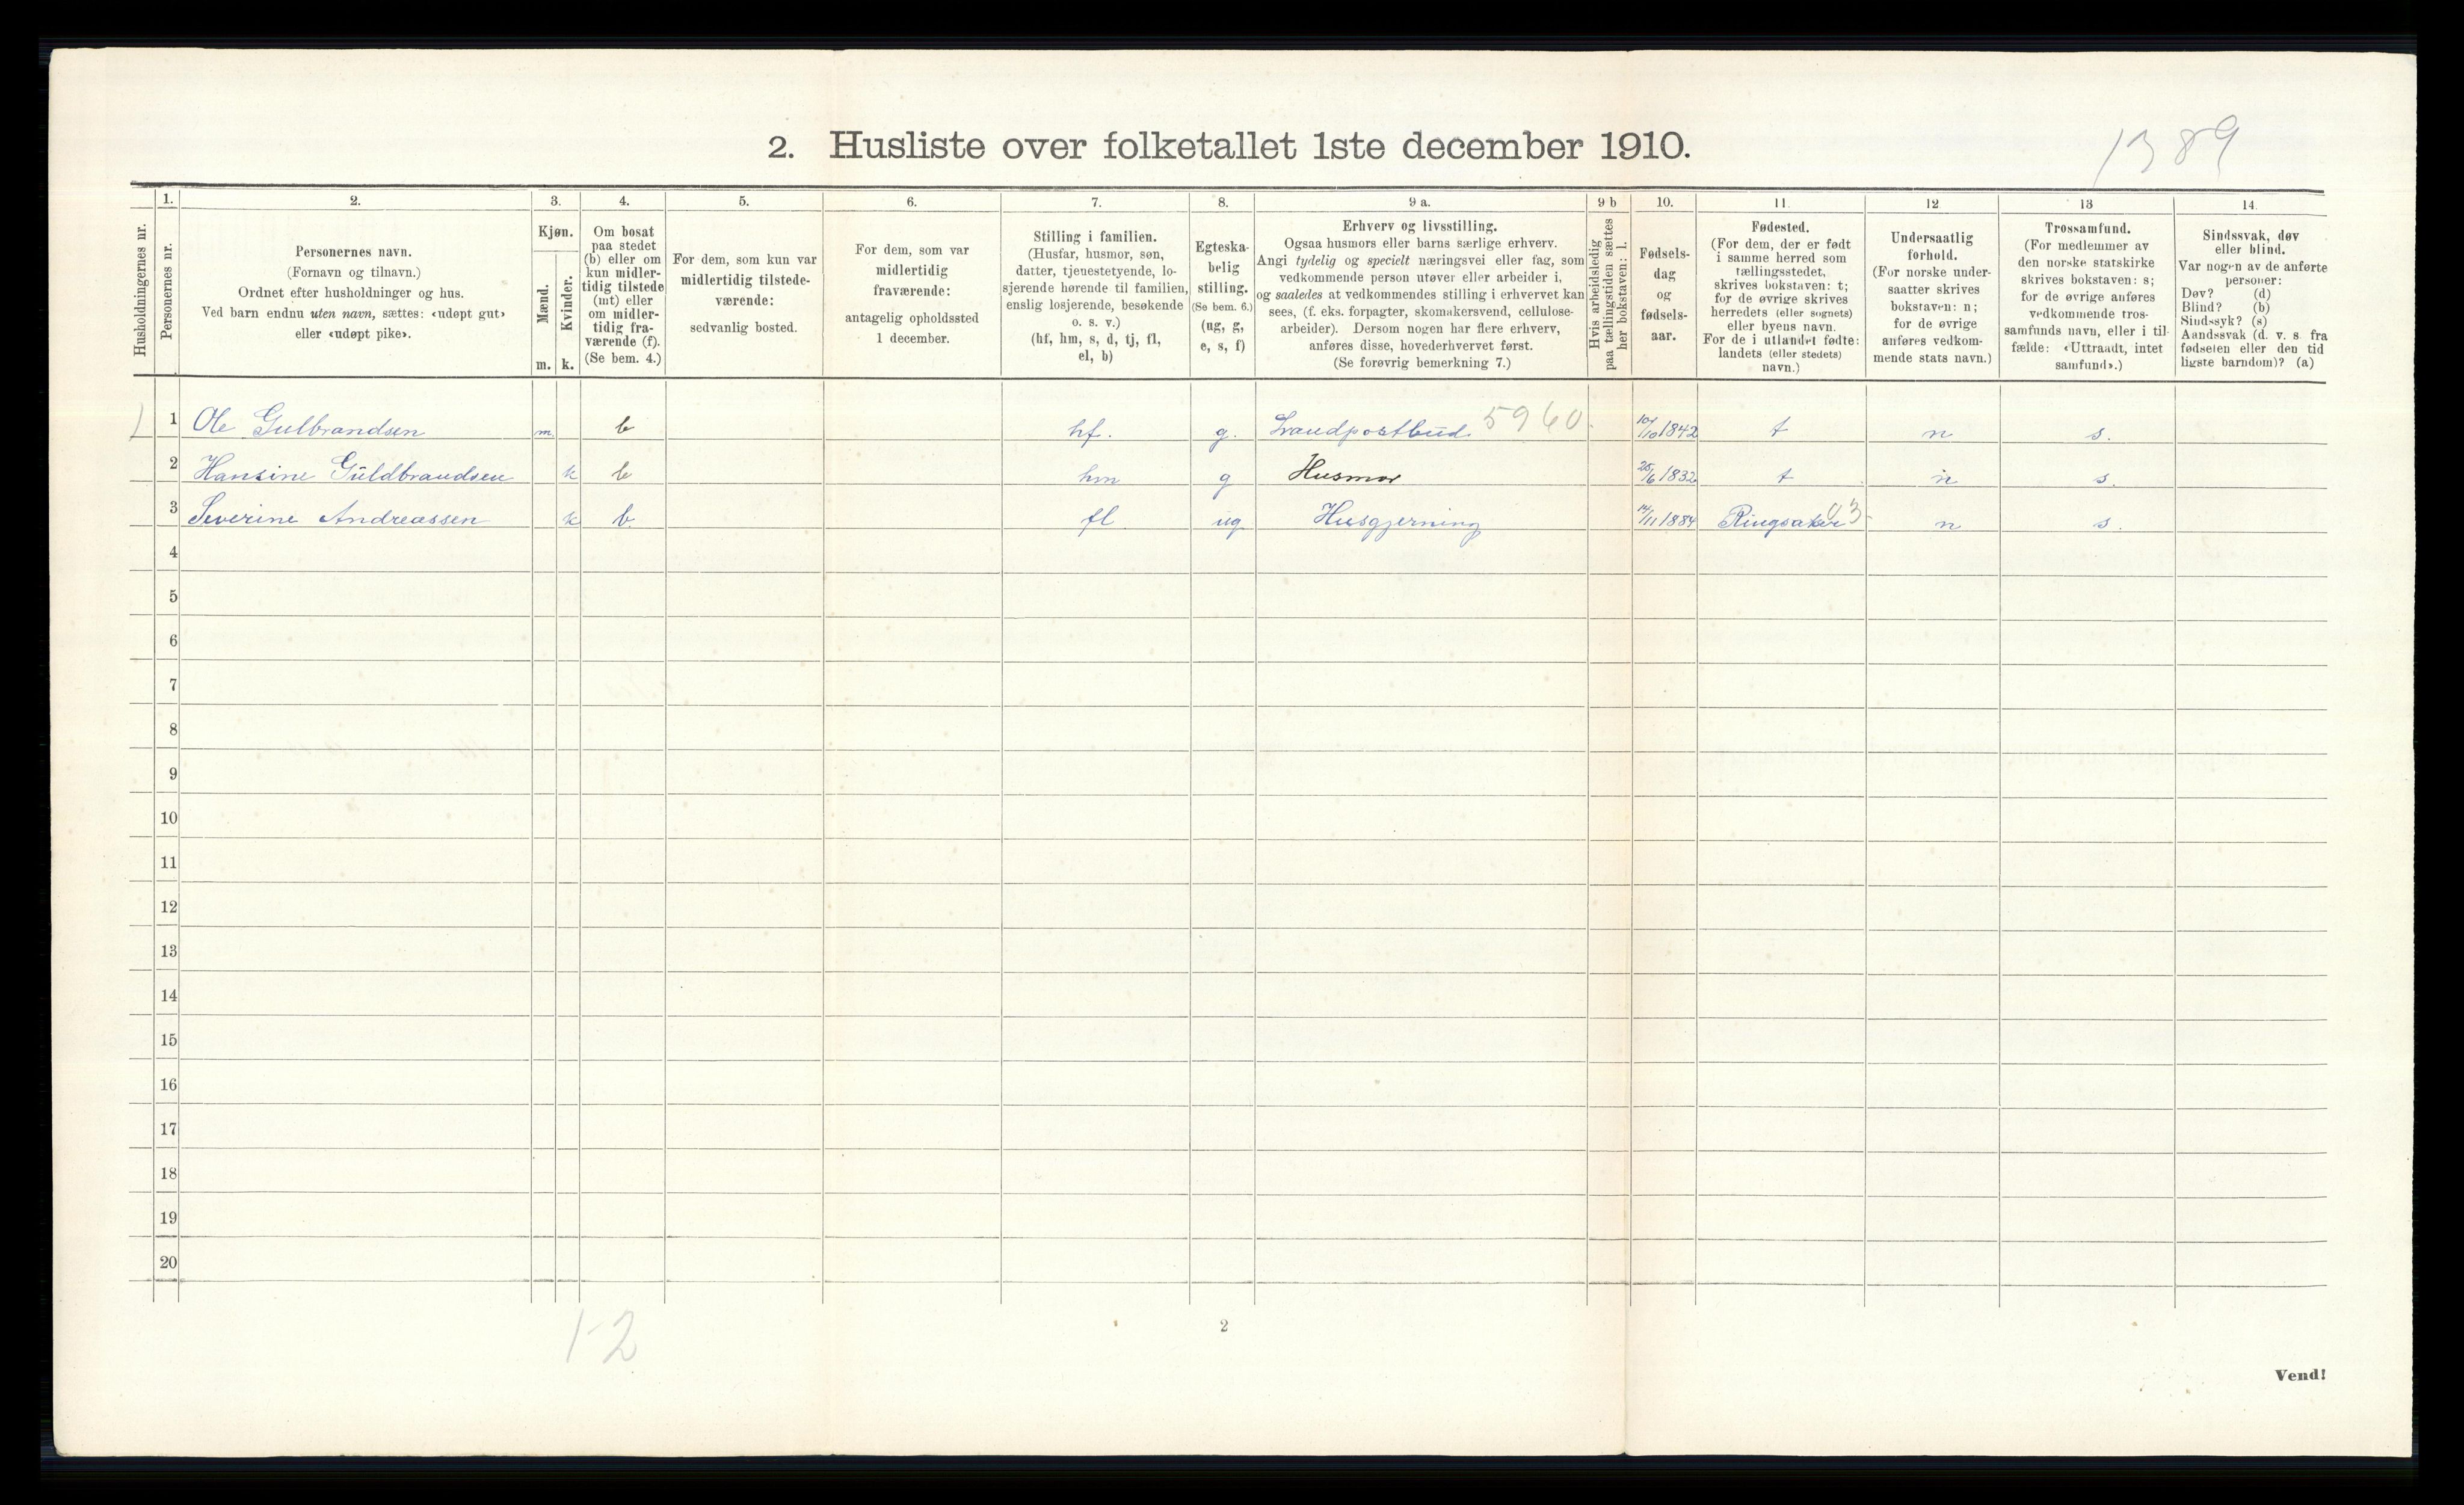 2. Husliste over folketallet 1ste december 1910.
1389
Husholdningernes nr.
1.
Personernes nr.
2.
Personernes navn.
(Fornavn og tilnavn.)
Ordnet efter husholdninger og hus.
Ved barn endnu uten navn, sættes: «udøpt gut»
eller «udøpt pike».
3.
Kjøn.
Mænd.
m.
Kvinder.
k.
4.
Om bosat
paa stedet
(b) eller om
kun midler-
tidig tilstede
(mt) eller
om midler-
tidig fra-
værende (f).
(Se bem. 4.)
5.
For dem, som kun var
midlertidig tilstede-
værende:
sedvanlig bosted.
6.
For dem, som var
midlertidig
fraværende:
antagelig opholdssted
1 december.
7.
Stilling i familien.
(Husfar, husmor, søn,
datter, tjenestetyende, lo-
sjerende hørende til familien,
enslig losjerende, besøkende
o. s. v.)
(hf, hm, s, d, tj, fl,
el, b)
8.
Egteska-
belig
stilling.
(Se bem. 6.)
(ug, g,
e, s, f)
9 a.
Erhverv og livsstilling.
Ogsaa husmors eller barns særlige erhverv.
Angi tydelig og specielt næringsvei eller fag, som
vedkommende person utøver eller arbeider i,
og saaledes at vedkommendes stilling i erhvervet kan
sees, (f. eks. forpagter, skomakersvend, cellulose-
arbeider). Dersom nogen har flere erhverv,
anføres disse, hovederhvervet først.
(Se forøvrig bemerkning 7.)
9 b
Hvis arbeidsledig
paa tællingstiden sættes
her bokstaven: l.
10.
Fødsels-
dag
og
fødsels-
aar.
11.
Fødested.
(For dem, der er født
i samme herred som
tællingsstedet,
skrives bokstaven: t;
for de øvrige skrives
herredets (eller sognets)
eller byens navn.
For de i utlandet fødte:
landets (eller stedets)
navn.)
12
Undersaatlig
forhold.
(For norske under-
saatter skrives
bokstaven: n;
for de øvrige
anføres vedkom-
mende stats navn.)
13
Trossamfund.
(For medlemmer av
den norske statskirke
skrives bokstaven: s;
for de øvrige anføres
vedkommende tros-
samfunds navn, eller i til-
fælde: «Uttraadt, intet
samfund».)
14.
Sindssvak, døv
eller blind.
Var nogen av de anførte
personer:
Døv? (d)
Blind? (b)
Sindssyk? (s)
Aandssvak (d. v. s. fra
fødselen eller den tid
ligste barndom)? (a)
1 1 Ole Gulbrandsen m. b hf. g. Landpostbud. 5960 10/10 1842 t n s.
2 Hansine Güldbrandsen k b hm g Husmor 25/6 1832 t n s.
3 Severine Andreassen k b fl ug Husgjerning 14/11 1884 Ringsaker 03 n s.
4
5
6
7
8
9
10
11
12
13
14
15
16
17
18
19
20
1-2
2
Vend!